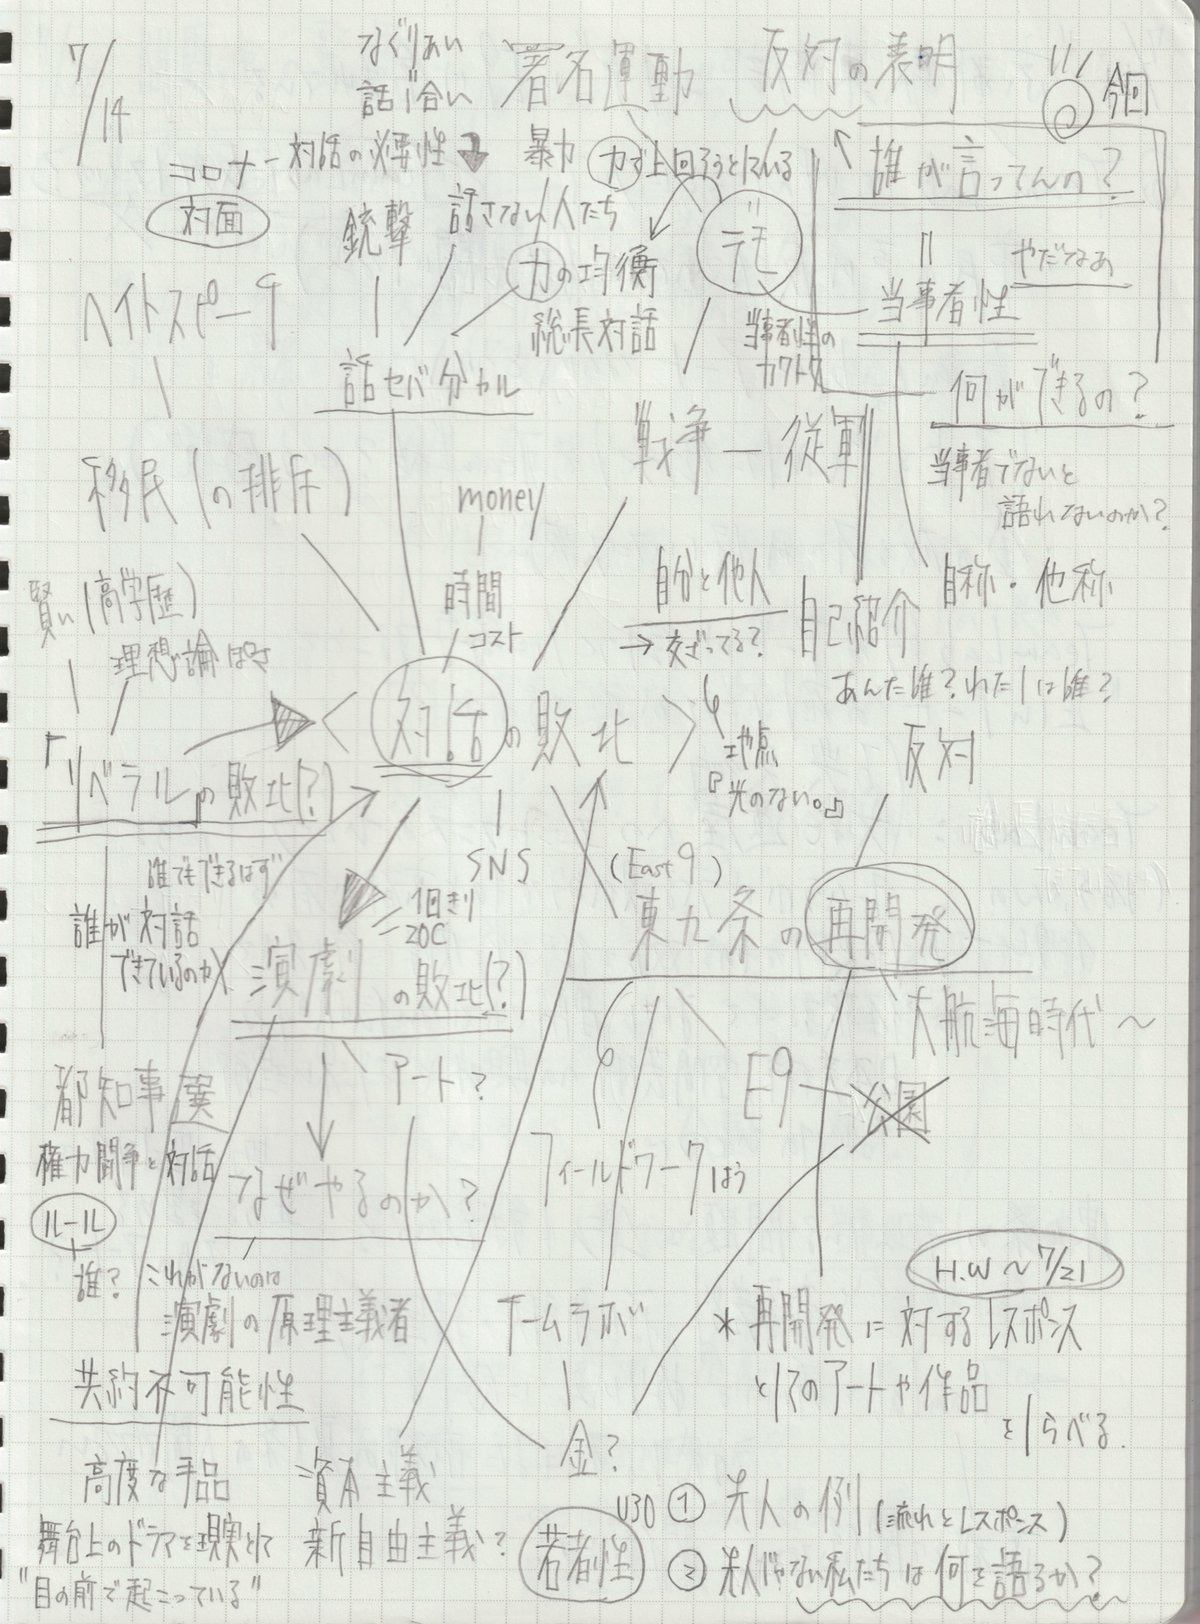 7/14
なぐりあい
||
話し合い
署名運動
反対の表明
今回
コロナ - 対話の必要性
対面
暴力
力で上回ろうとしている
誰が言ってんの?
銃撃
話さない人たち
デモ
||
やだなあ
力の均衡
当事者性
ヘイトスピーチ
総長対話
当事者性の
カクトク
話セバ分カル
何ができるの?
戦争 — 従軍
当事者でないと
語れないのか?
移民(の排斥)
money
自分と他人
→ 交ざってる?
自己紹介
自称・他称
賢い(高学歴)
時間
コスト
理想論ぽさ
あんた誰? わたしは誰?
〈対話の敗北〉
地点
『光のない。』
反対
「リベラル」の敗北(?)
SNS
(East 9)
東九条の再開発
誰でもできるはず
誰が対話
できているのか
1回きり
20C
演劇の敗北(?)
大航海時代~
アート?
E9
公園
都知事選
権力闘争と対話
なぜやるのか?
フィールドワークはう
ルール
誰?
これがないのは
演劇の原理主義者
チームラボ
H.W ~ 7/21
* 再開発に対するレスポンス
としてのアートや作品
をしらべる.
共約不可能性
金?
高度な手品
資本主義
舞台上のドラマを現実として
新自由主義?
"目の前で起こっている"
若者性
U30
① 先人の例 (流れとレスポンス)
② 先人じゃない私たちは何を語るか?